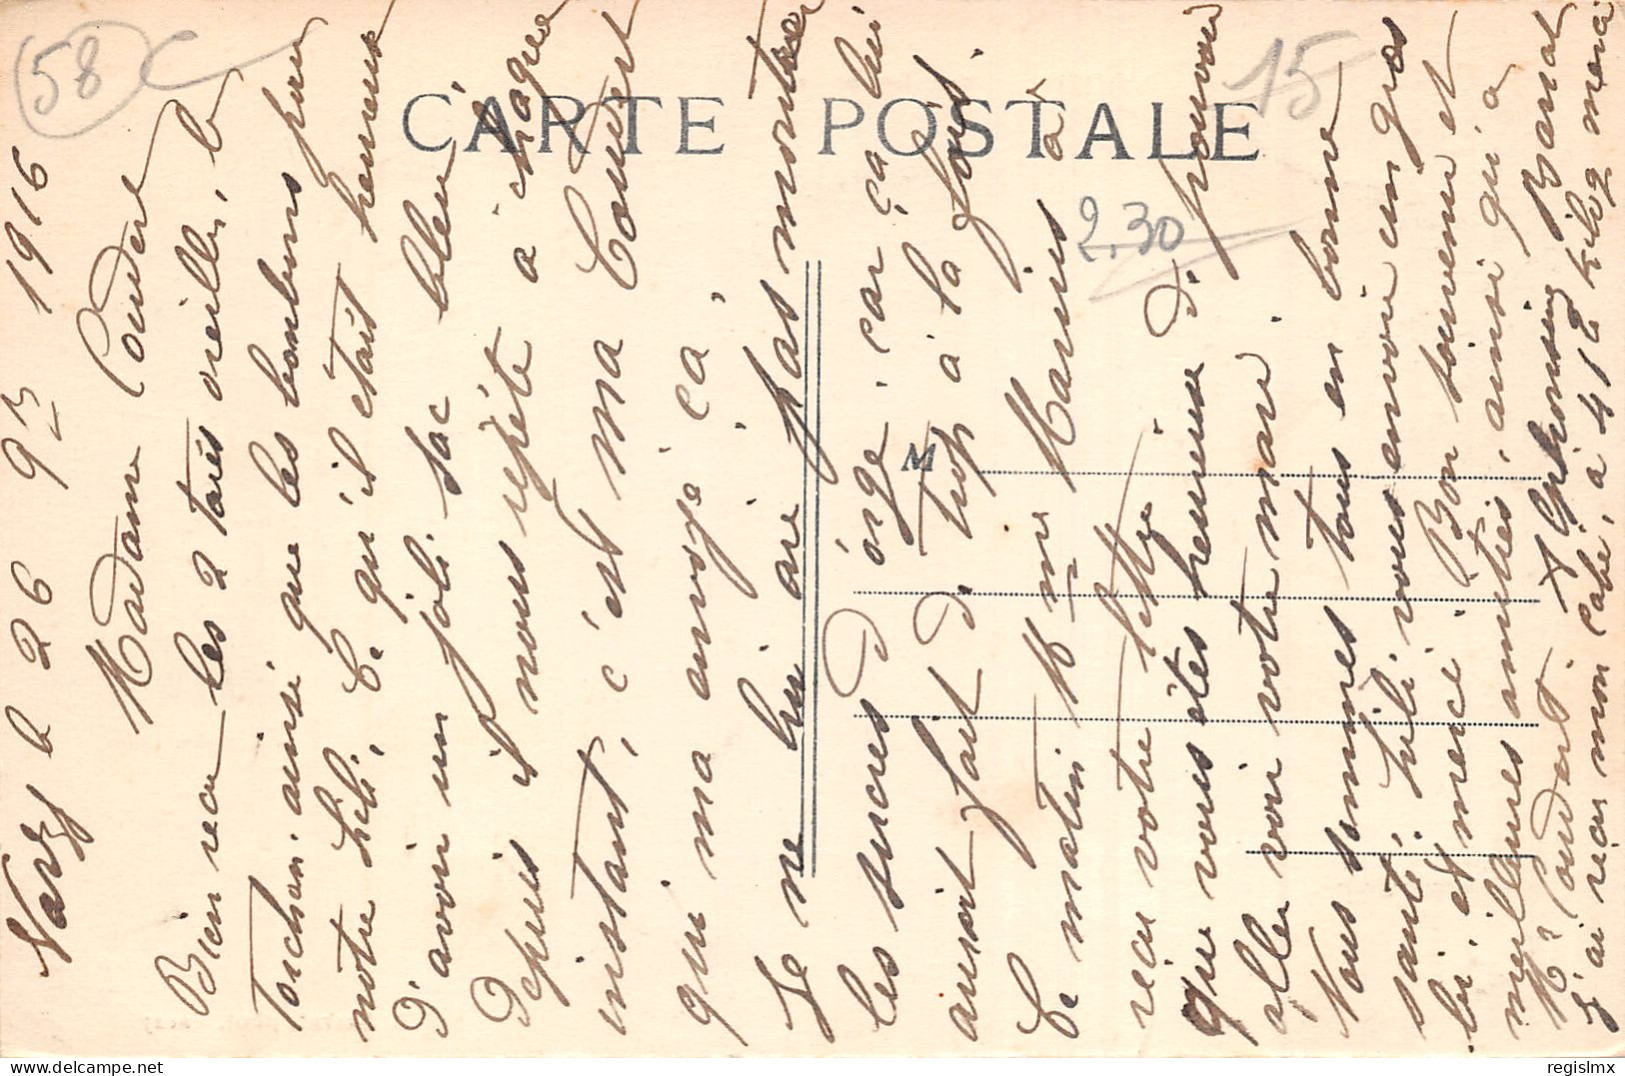 58 C
15
2.30
CARTE POSTALE
M
Varzy le 26 9bre 1916
Madame Couderc
Bien reçu les 2 taies oreiller, le
torchon. ainsi que les bonbons pour
notre Lili, Ce qu'il était heureux
d'avoir un joli sac bleu,
Depuis il nous répète à chaque
instant, c'est ma Coudert
qui m'a envoyé ça,
Je ne lui aie pas montrer
les sucres d'orge, car ça lui
aurait fait d trop à la fois
Ce matin Mme Marius a
reçu votre lettre
que vous êtes heureux d'pouvoir
aller voir votre mari
Nous sommes tous en bonne
santé, Lili vous envoie un gros
bi. et merci. Bon souvenir et
meilleures amitiés, ainsi qu'à
Mr Coudert. Alphonsine Barrat
J'ai reçu mon café, à 4 18 kilog merci
regislmx